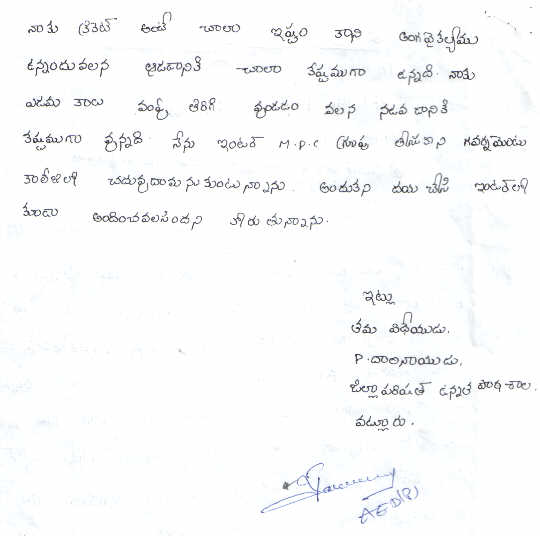 నాకు క్రికెట్ అంటే చాలా ఇష్టం కాని అంగవైకల్యము
ఉన్నందువలన ఆడటానికి చాలా కష్టముగా ఉన్నది. నాకు
ఎడమ కాలు వంపు తిరిగి వుండడం వలన నడవటానికి
కష్టముగా వున్నది. నేను ఇంటర్ M.P.C గ్రూపు తీసుకొని గవర్నమెంటు
కాలేజిలో చదువుదామనుకుంటున్నాను. అందుకని దయచేసి ఇంటర్‌లో
కూడా అందించవలసిందని కోరుతున్నాను.
ఇట్లు
తమ విధేయుడు.
P. దాలినాయుడు.
జిల్లా పరిషత్ ఉన్నత పాఠశాల.
వట్లూరు.